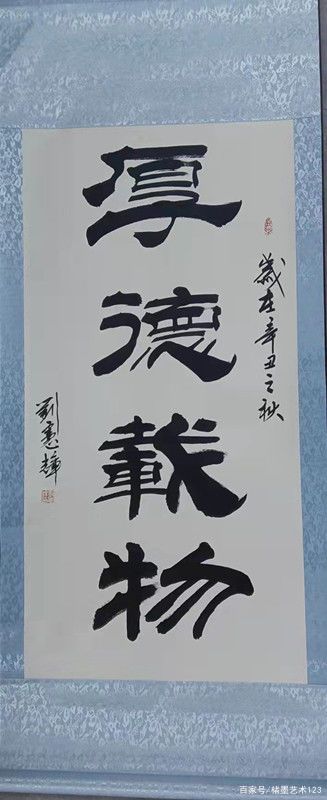 歲在辛丑之秋
厚德載物
刘
百家号/楮墨艺术123